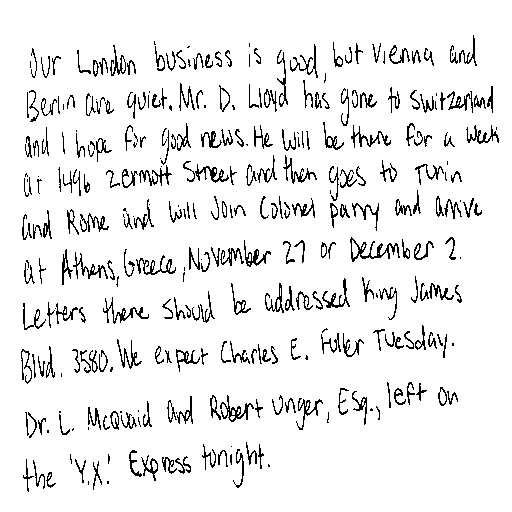 Our London business is good, but Vienna and
Berlin are quiet. Mr. D. Lloyd has gone to Switzerland
and I hope for good news. He will be there for a week
at 1496 Zermott Street and then goes to Turin
and Rome and will join Colonel Parry and arrive
at Athens, Greece, November 27 or December 2.
Letters there should be addressed King James
Blvd. 3580. We expect Charles E. Fuller Tuesday.
Dr. L. McQuaid and Robert Unger, Esq., left on
the 'Y.X.' Express tonight.